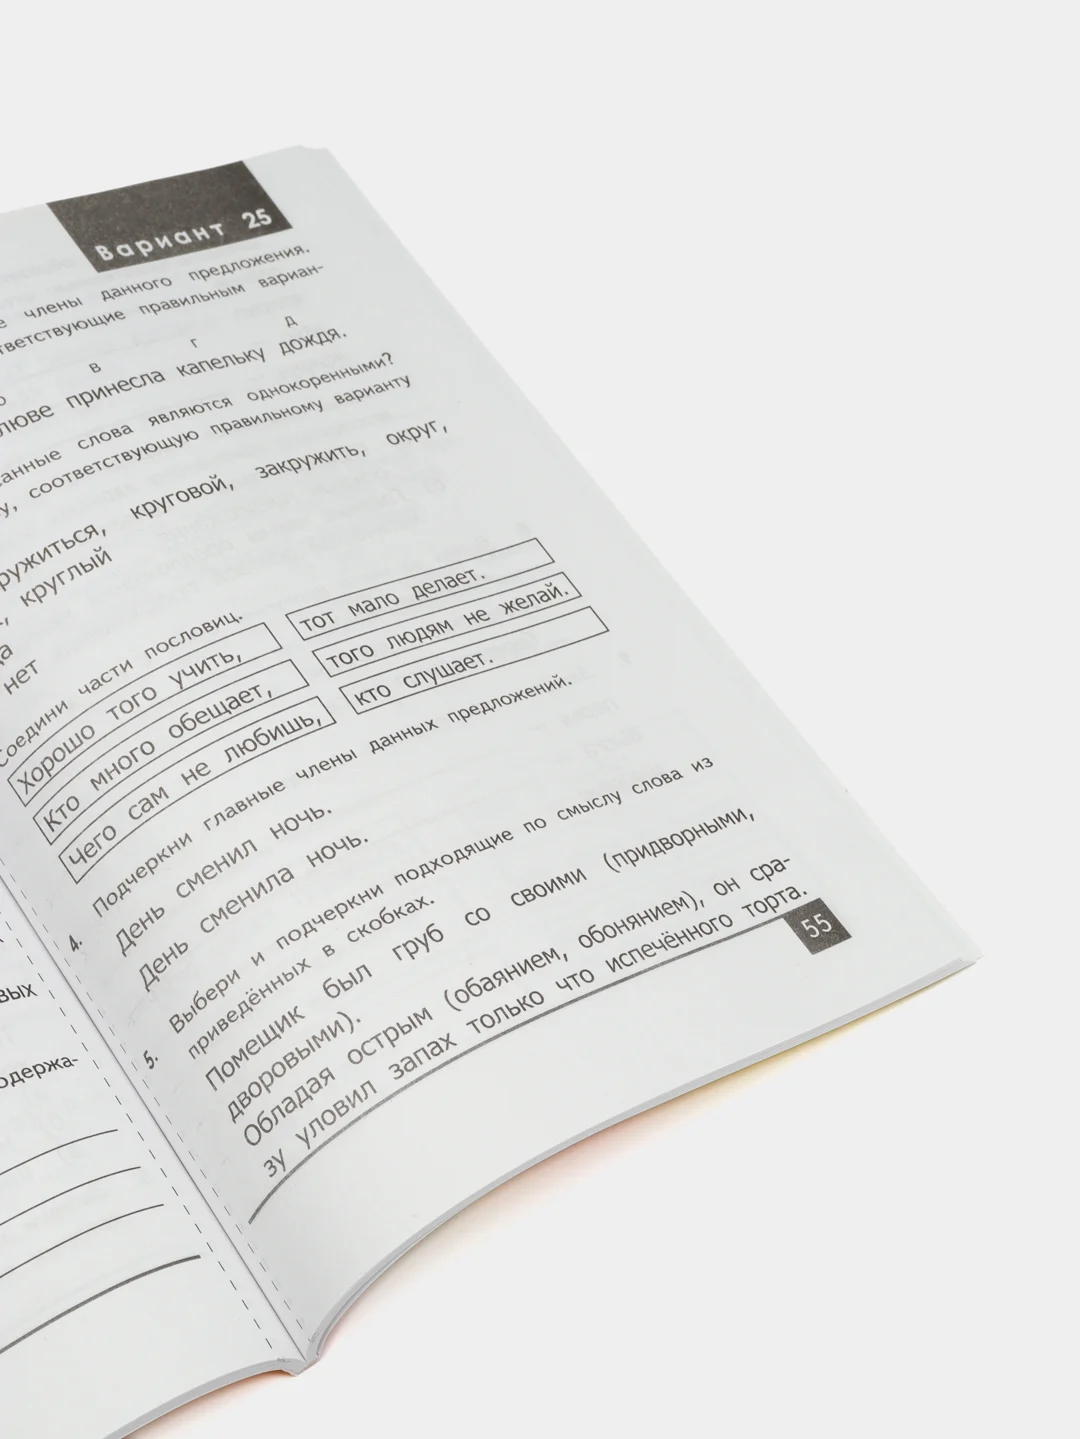 Вариант 25
члены данного предложения.
правильным вариан-
в г д
принесла капельку дождя.
слова являются однокоренными?
соответствующую правильному варианту
круговой, закружить, округ,
круглый
нет
Соедини части пословиц.
Хорошо того учить,
тот мало делает.
Кто много обещает,
того людям не желай.
Чего сам не любишь,
кто слушает.
4. Подчеркни главные члены данных предложений.
День сменил ночь.
День сменила ночь.
5. Выбери и подчеркни подходящие по смыслу слова из
приведённых в скобках.
Помещик был груб со своими (придворными,
дворовыми).
Обладая острым (обаянием, обонянием), он сра-
зу уловил запах только что испечённого торта.
55